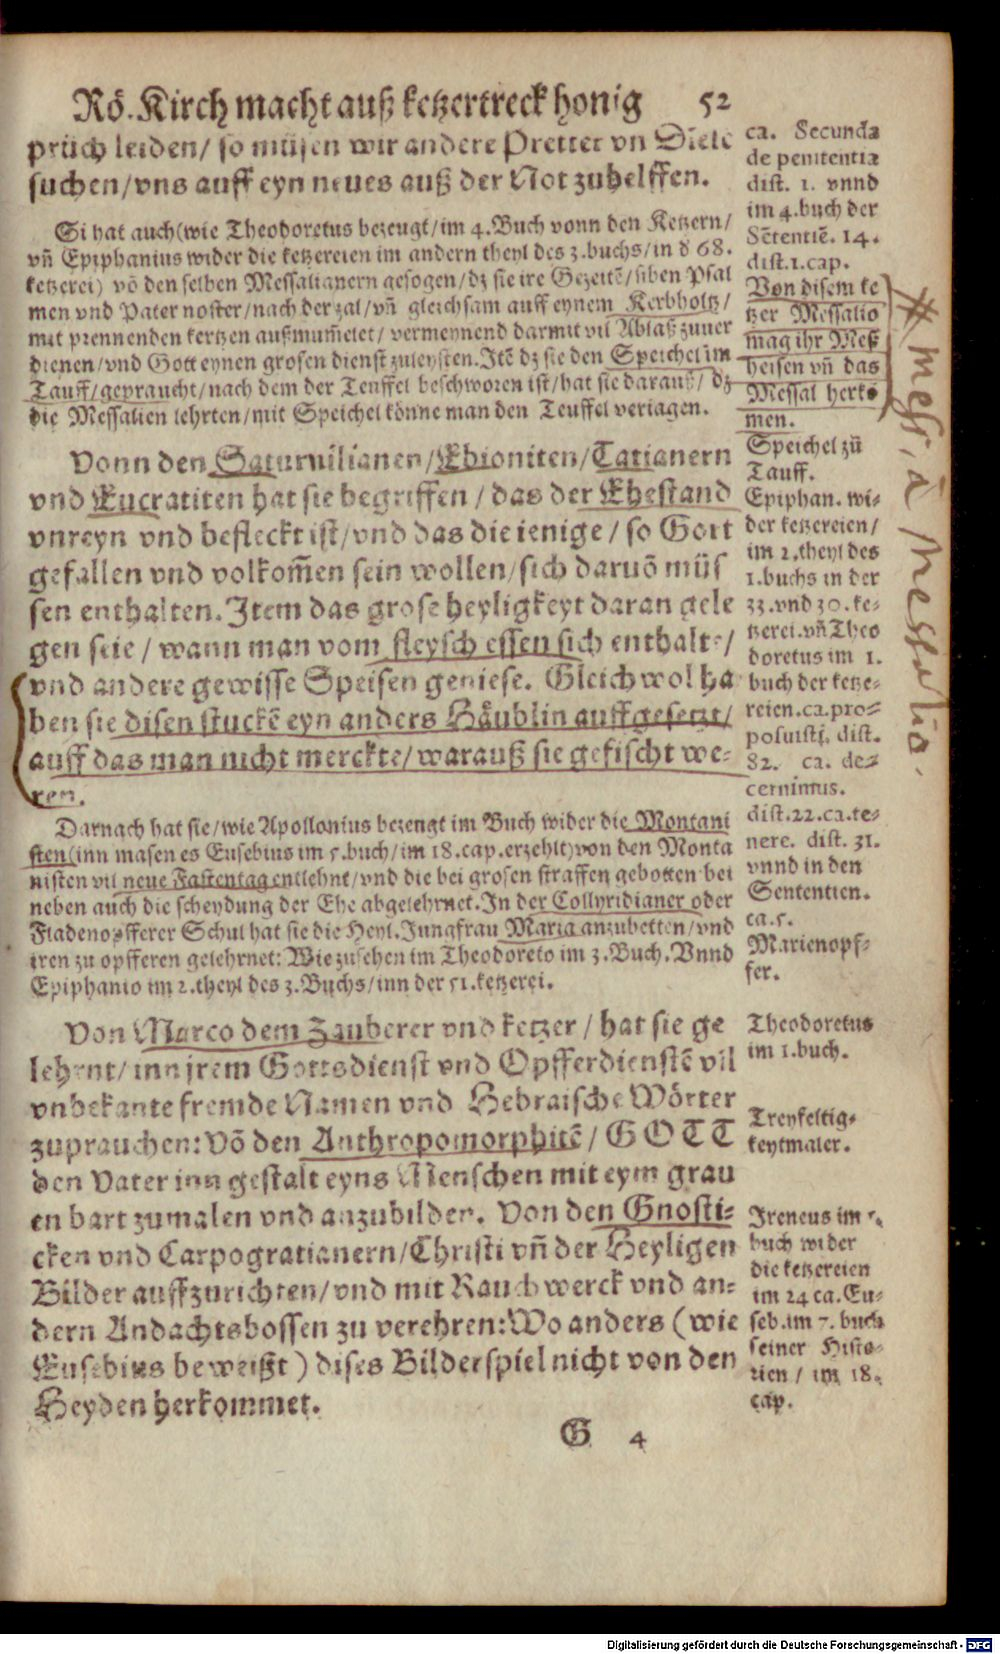 Rö. Kirch macht auß ketzertreck honig 52
prüch leiden/ so müsen wir andere Pretter vn Diele
suchen/vns auff eyn neues auß der Not zuhelffen.
Si hat auch (wie Theodoretus bezeugt/im 4. Buch vonn den Ketzern/
vñ Epiphanius wider die ketzereien im andern theyl des 3. buchs/in ð 68.
ketzerei) võ den selben Messalianern gesogen/dz sie ire Gezeitẽ/siben Psal
men vnd Pater noster/nach der zal/vñ gleichsam auff eynem Kerbholtz/
mit prennenden kertzen außmum̃elet/vermeynend darmit vil Ablaß zuuer
dienen/vnd Gott eynen grosen dienst zuleysten. Itẽ dz sie den Speichel im
Tauff/gepraucht/nach dem der Teuffel beschworen ist/hat sie darauß/ dz
die Messalien lehrten/mit Speichel könne man den Teuffel veriagen.
Vonn den Saturnilianen/Ebioniten/Tatianern
vnd Eucratiten hat sie begriffen/ das der Ehestand
vnreyn vnd befleckt ist/vnd das die ienige/ so Gott
gefallen vnd volkom̃en sein wollen/sich daruõ müs
sen enthalten. Item das grose heyligkeyt daran gele
gen seie/ wann man vom fleysch essen sich enthalte/
vnd andere gewisse Speisen geniese. Gleich wol ha
ben sie disen stuckẽ eyn anders Häublin auffgesetzt/
auff das man nicht merckte/warauß sie gefischt we-
ren.
Darnach hat sie/wie Apollonius bezeugt im Buch wider die Montani
sten (inn masen es Eusebius im 5. buch/im 18. cap. erzehlt) von den Monta
nisten vil neue Fastentag entlehnt/vnd die bei grosen straffen gebotten bei
neben auch die scheydung der Ehe abgelehrnet. In der Collyridianer oder
Fladenopfferer Schul hat sie die Heyl. Jungfrau Maria anzubetten/vnd
iren zu opfferen gelehrnet: Wie zusehen im Theodoreto im 3. Buch. Vnnd
Epiphanio im 2. theyl des 3. Buchs/inn der 51. ketzerei.
Von Marco dem Zauberer vnd ketzer/ hat sie ge
lehrnt/inn jrem Gottsdienst vnd Opfferdienstẽ vil
vnbekante fremde Namen vnd Hebraische Wörter
zuprauchen: Võ den Anthropomorphitẽ/ GOTT
den Vater inn gestalt eyns Menschen mit eym grau
en bart zumalen vnd anzubilden. Von den Gnosti-
cken vnd Carpogratianern/Christi vñ der Heyligen
Bilder auffzurichten/vnd mit Rauchwerck vnd an-
dern Andachtsbossen zu verehren: Wo anders (wie
Eusebius beweißt) dises Bilderspiel nicht von den
Heyden herkommet.
G 4
ca. Secunda
de penitentia
dist. 1. vnnd
im 4. buch der
Sẽtentiẽ. 14.
dist. 1. cap.
Von disem ke
tzer Messalio
mag ihr Meß
heisen vñ das
Messal herkõ
men.
Speichel zũ
Tauff.
Epiphan. wi-
der ketzereien/
im 2. theyl des
1. buchs in der
23. vnd 30. ke-
tzerei. vñ Theo
doretus im 1.
buch der ketze-
reien. ca. pro-
posuisti, dist.
82. ca. de-
cernimus.
dist. 22. ca. te-
nere. dist. 31.
vnnd in den
Sententien.
ca. 5.
Marienopf-
fer.
Theodoretus
im 1. buch.
Treyfeltig-
keytmaler.
Ireneus im 1.
buch wider
die ketzereien
im 24 ca. Eu-
seb. im 7. buch
seiner Histo-
rien/ im 18.
cap.
# Mess, à Messalio.
Digitalisierung gefördert durch die Deutsche Forschungsgemeinschaft - DFG